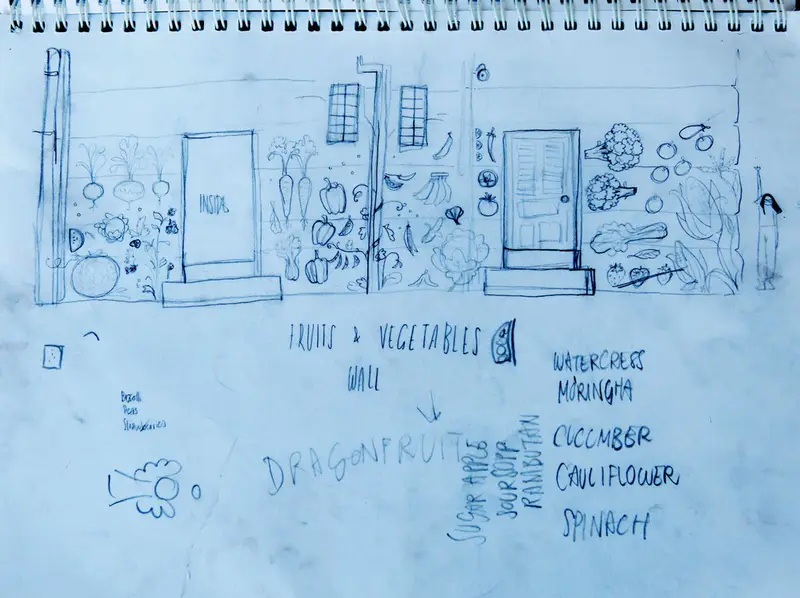 INSIDE
FRUITS & VEGETABLES
WALL
DRAGONFRUIT
SUGAR APPLE
SOURSOP
RAMBUTAN
WATERCRESS
MORINGHA
CUCUMBER
CAULIFLOWER
SPINACH
PEAS